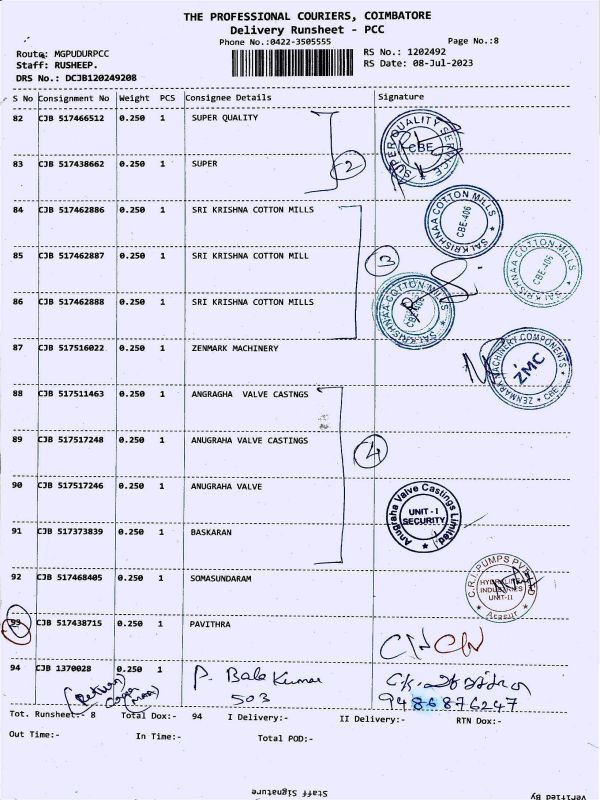 THE PROFESSIONAL COURIERS, COIMBATORE
Delivery Runsheet - PCC
Phone No.:0422-3505555
Page No.:8
Route: MGPUDURPCC
RS No.: 1202492
Staff: RUSHEEP.
RS Date: 08-Jul-2023
DRS No.: DCJB120249208
S No Consignment No Weight PCS Consignee Details Signature
82 CJB 517466512 0.250 1 SUPER QUALITY
SUPER QUALITY SERVICE CBE
83 CJB 517438662 0.250 1 SUPER
2
84 CJB 517462886 0.250 1 SRI KRISHNA COTTON MILLS
SAI KRISHNAA COTTON MILLS CBE-406
85 CJB 517462887 0.250 1 SRI KRISHNA COTTON MILL
3
SAI KRISHNAA COTTON MILLS CBE-406
86 CJB 517462888 0.250 1 SRI KRISHNA COTTON MILLS
SAI KRISHNAA COTTON MILLS CBE-406
87 CJB 517516022 0.250 1 ZENMARK MACHINERY
ZENMARK MACHINERY COMPONENTS CBE ZMC
88 CJB 517511463 0.250 1 ANGRAGHA VALVE CASTNGS
89 CJB 517517248 0.250 1 ANUGRAHA VALVE CASTINGS
4
90 CJB 517517246 0.250 1 ANUGRAHA VALVE
Anugraha Valve Castings Limited UNIT - I SECURITY
91 CJB 517373839 0.250 1 BASKARAN
92 CJB 517468405 0.250 1 SOMASUNDARAM
C.R.I. PUMPS PVT LTD UNIT-II
93 CJB 517438715 0.250 1 PAVITHRA
94 CJB 1370028 0.250 1 P. Bala Kumar
503
9486876247
Tot. Runsheet:- 8 Total Dox:- 94 I Delivery:- II Delivery:- RTN Dox:-
Out Time:- In Time:- Total POD:-
Staff Signature
Verified By